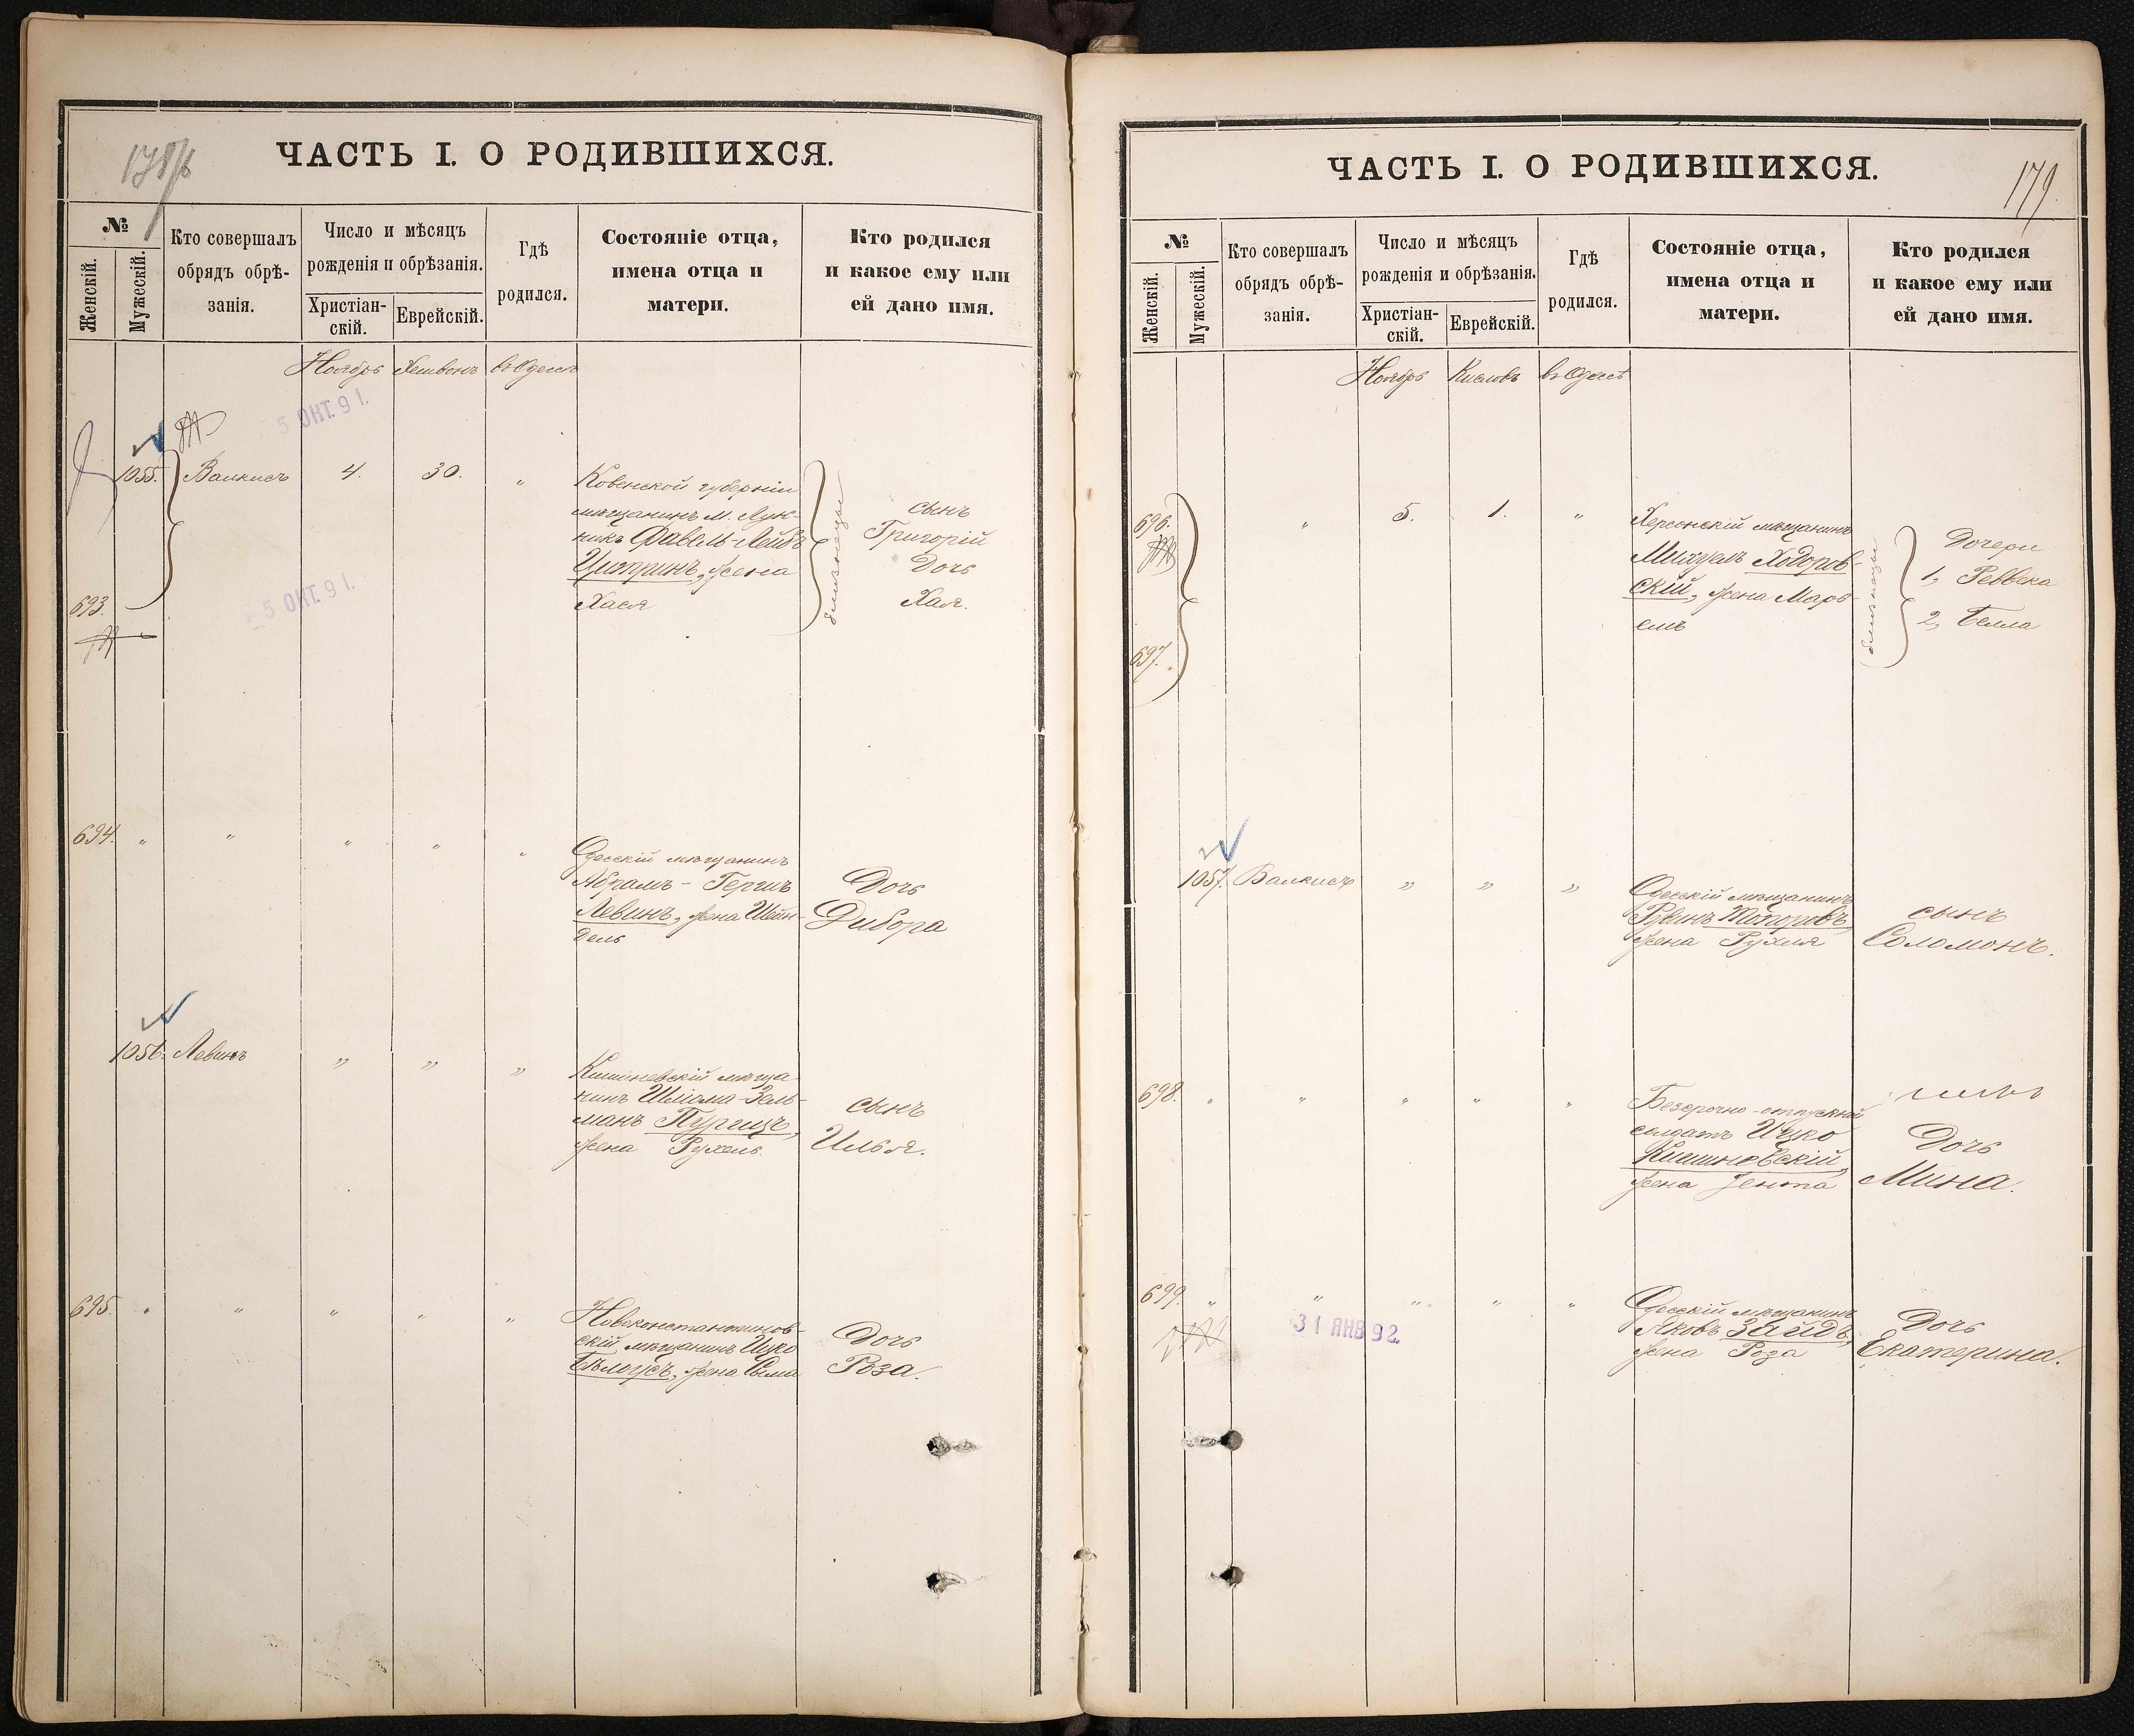 178/б
ЧАСТЬ I. О РОДИВШИХСЯ.
№
Женскій.
Мужескій.
Кто совершалъ
обрядъ обрѣ-
занія.
Число и мѣсяцъ
рожденія и обрѣзанія.
Христіан-
скій.
Еврейскій.
Гдѣ
родился.
Состояніе отца,
имена отца и
матери.
Кто родился
и какое ему или
ей дано имя.
Ноябрь Хешвонъ въ Одессѣ
5 ОКТ. 91.
1055. Валкисъ 4. 30. "
Ковенской губерніи
мѣщанинъ м. Лук-
никъ Фавель-Лейбъ
Цитринъ, жена
Хася
близнецы
сынъ
Григорій
Дочь
Хая.
5 ОКТ. 91.
693.
694. " " " " "
Одесскій мѣщанинъ
Абрамъ-Гершъ
Левинъ, жена Шейн-
дель
Дочь
Дибора
1056. Левинъ " " "
Кишиневскій мѣща-
нинъ Шліома-Зель-
манъ Пургицъ,
жена Рухель.
сынъ
Илья.
695. " " " " "
Новоконстантинов-
скій мѣщанинъ Ицко
Бѣлоусъ, жена Сима
Дочь
Роза.
179.
ЧАСТЬ I. О РОДИВШИХСЯ.
№
Женскій.
Мужескій.
Кто совершалъ
обрядъ обрѣ-
занія.
Число и мѣсяцъ
рожденія и обрѣзанія.
Христіан-
скій.
Еврейскій.
Гдѣ
родился.
Состояніе отца,
имена отца и
матери.
Кто родился
и какое ему или
ей дано имя.
Ноябрь Кислевъ въ Одессѣ
696. " 5. 1. "
Херсонскій мѣщанинъ
Михуелъ Ходоров-
скій, жена Марь-
емъ
близнецы
Дочери
1, Реввека
2, Белла
697.
1057. Валкисъ " " "
Одесскій мѣщанинъ
Рувинъ Топоровъ,
жена Рухля
сынъ
Соломонъ.
698. " " " " "
Безсрочно-отпускной
солдатъ Ицко
Кишиневскій,
жена Јента
Дочь
Мина.
699. " " " " "
31 ЯНВ 92.
Одесскій мѣщанинъ
Яковъ Зайдъ,
жена Роза
Дочь
Екатерина.